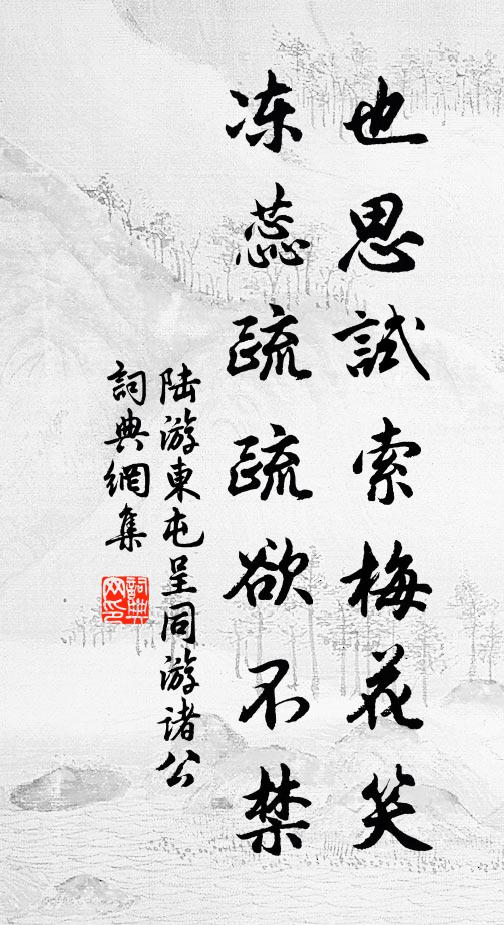 也思試索梅花笑
冻蕊疏疏欲不禁
陆游東屯呈同游诸公
詞典網集
詞典網印